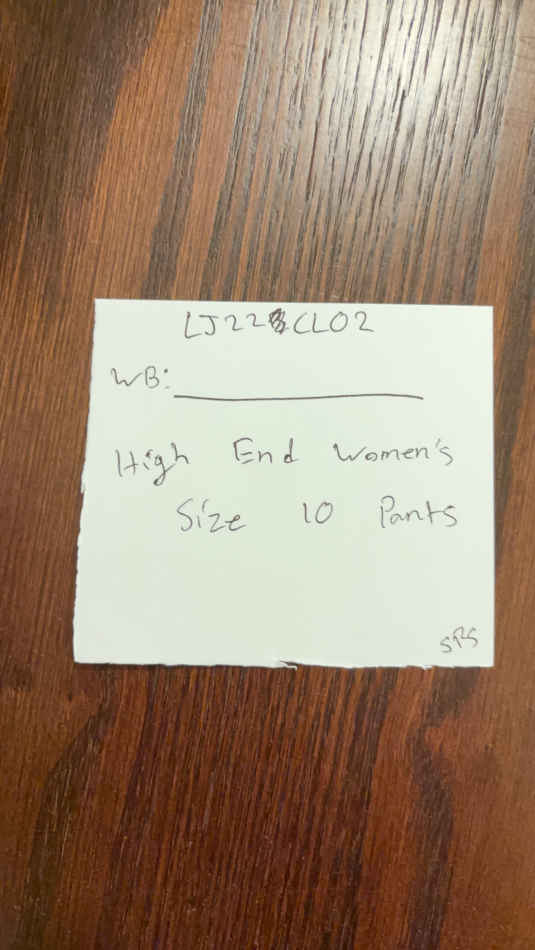 LJ228CL02
WB:
High End Women's
Size 10 Pants
SRS